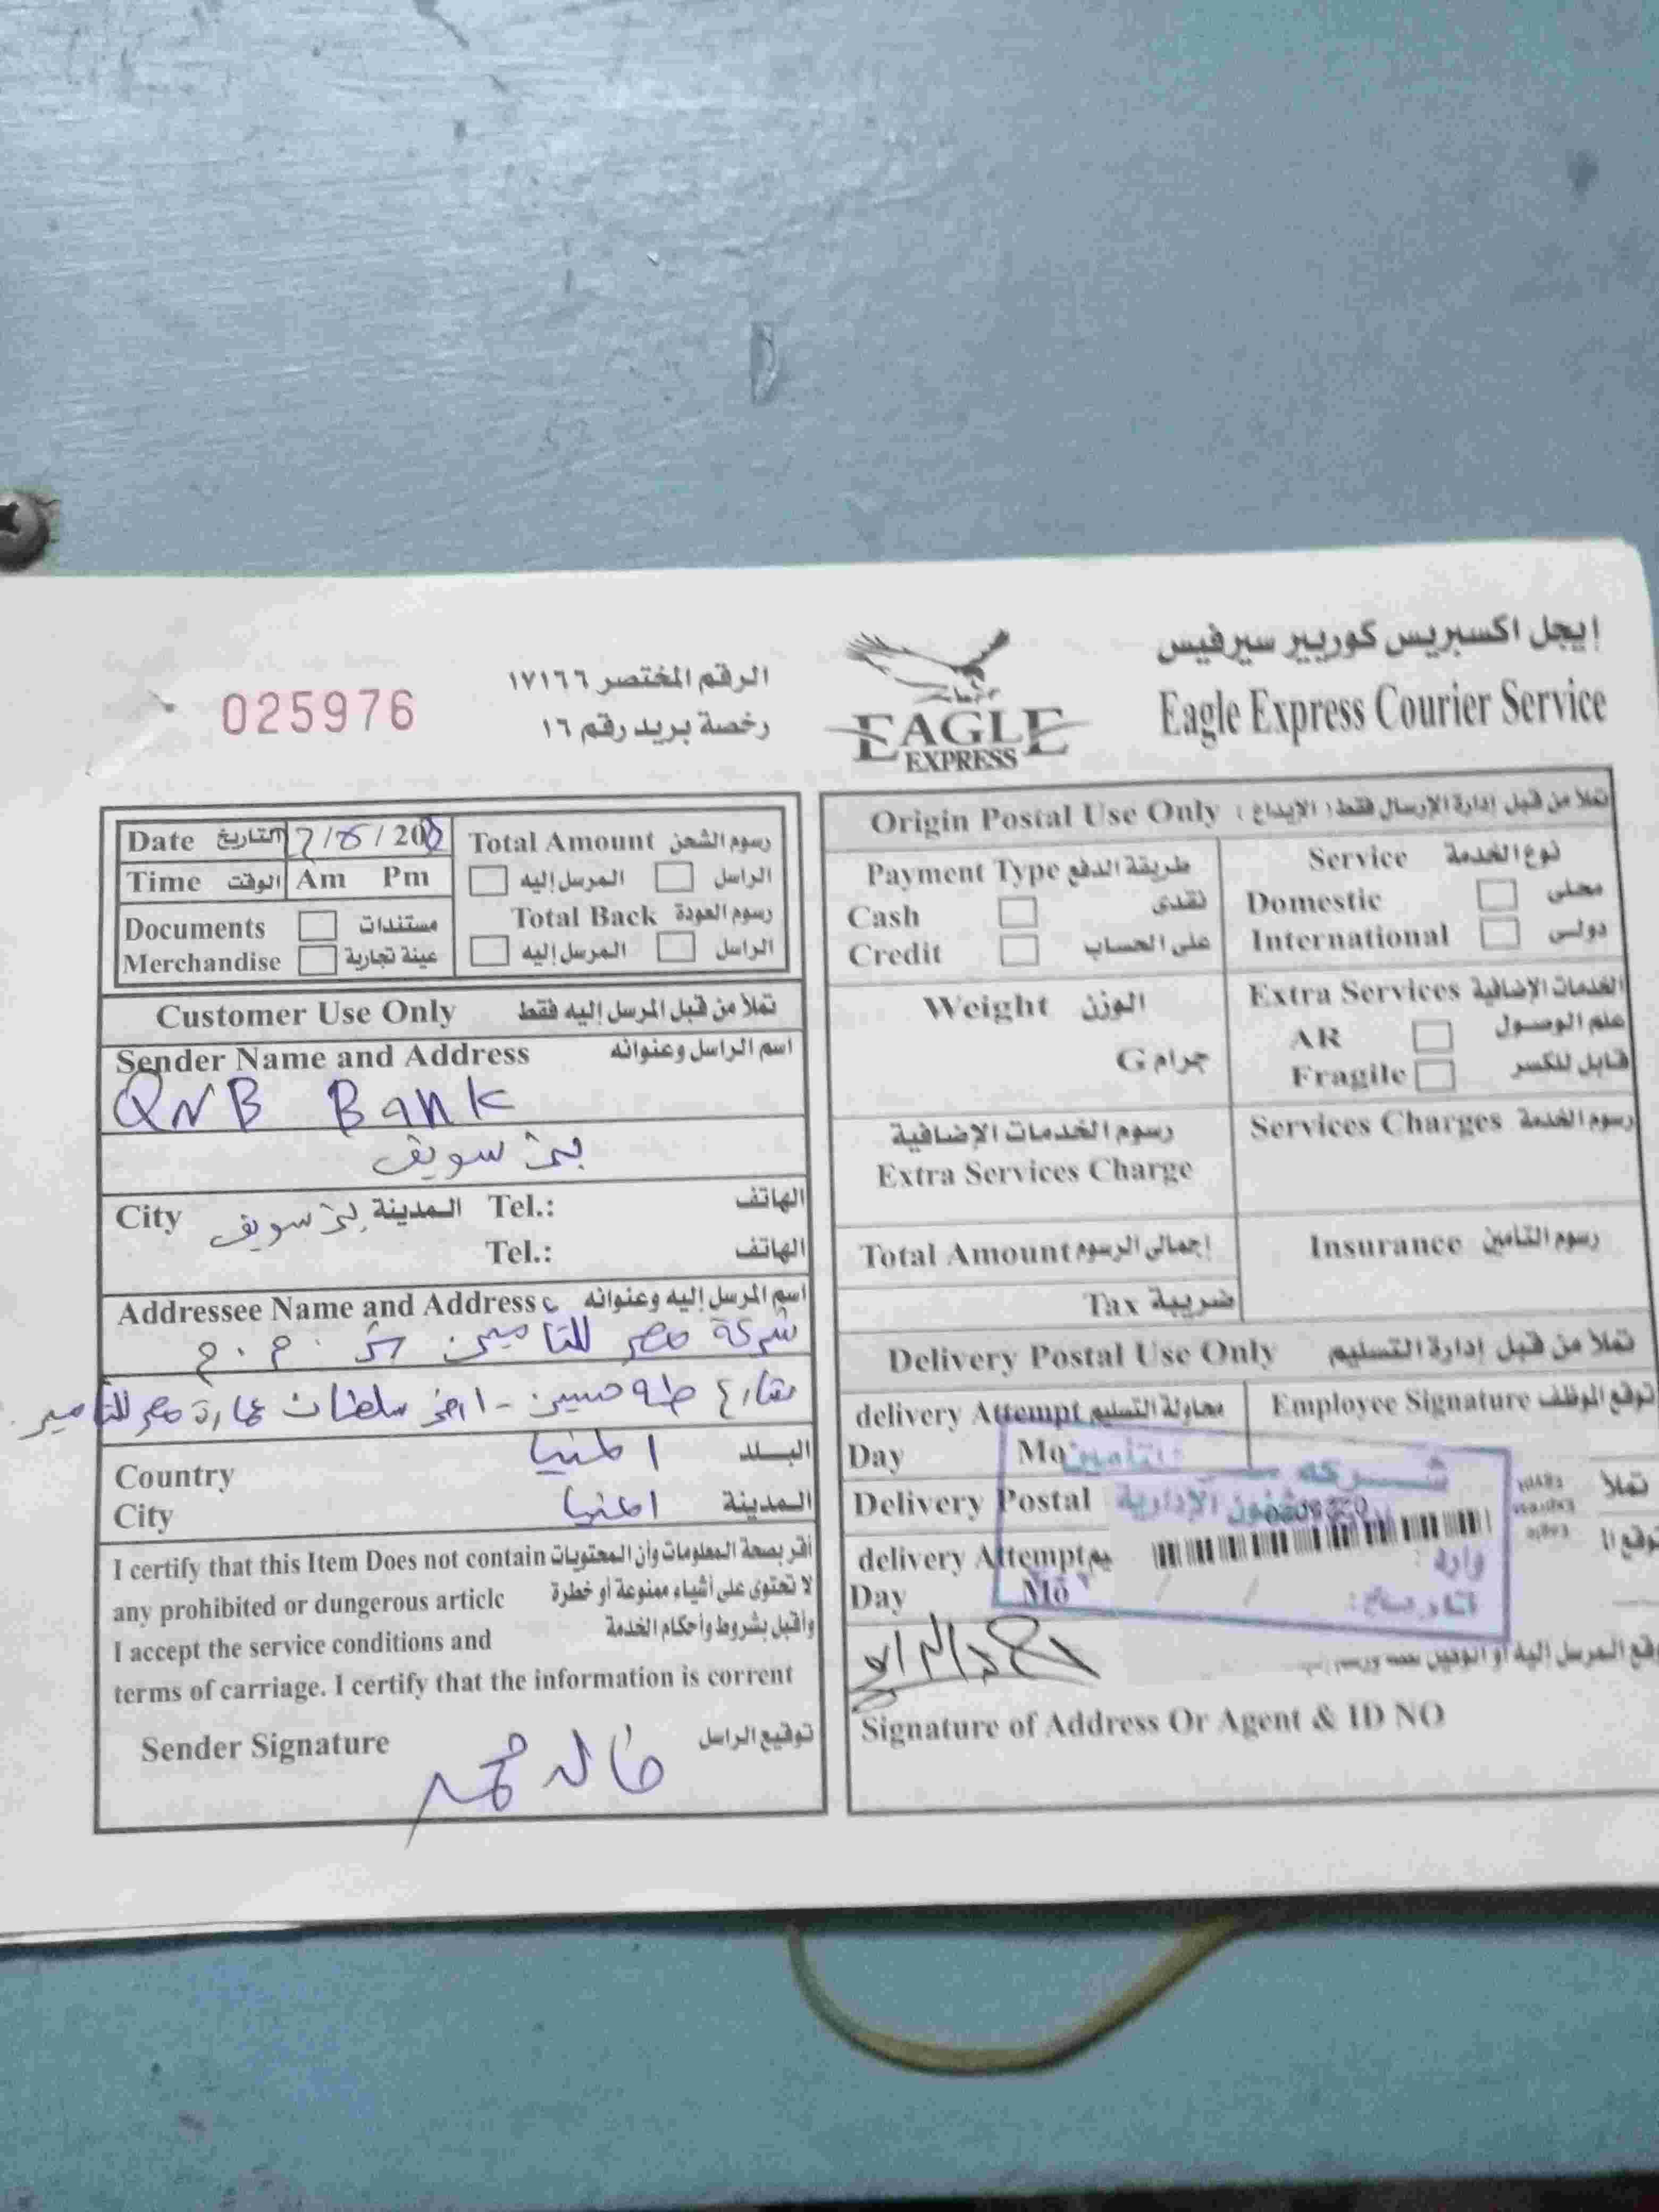 إيجل اكسبريس كوريير سيرفيس
Eagle Express Courier Service
EAGLE
EXPRESS
الرقم المختصر ١٧١٦٦
رخصة بريد رقم ١٦
025976
Date التاريخ
Time الوقت Am Pm
Documents مستندات
Merchandise عينة تجارية
Total Amount رسوم الشحن
المرسل إليه الراسل
Total Back رسوم العودة
المرسل إليه الراسل
Customer Use Only تملأ من قبل المرسل إليه فقط
Sender Name and Address اسم الراسل وعنوانه
QNB Bank
بنى سويف
City المدينة بنى سويف Tel.: الهاتف
Tel.: الهاتف
Addressee Name and Address اسم المرسل إليه وعنوانه
شركة مصر للتأمين
شارع طه حسين - ارض سلطان عمارة مصر للتأمين
Country البلد المنيا
City المدينة المنيا
I certify that this Item Does not contain أقر بصحة المعلومات وأن المحتويات
any prohibited or dungerous article لا تحتوى على أشياء ممنوعة أو خطرة
I accept the service conditions and وأقبل بشروط وأحكام الخدمة
terms of carriage. I certify that the information is corrent
Sender Signature توقيع الراسل
خالد محمد
Origin Postal Use Only تملأ من قبل إدارة الإرسال فقط (الإيداع)
Payment Type طريقة الدفع
Cash نقدى
Credit على الحساب
Service نوع الخدمة
Domestic محلى
International دولى
Weight الوزن
G جرام
Extra Services الخدمات الإضافية
AR علم الوصول
Fragile قابل للكسر
رسوم الخدمات الإضافية
Extra Services Charge
Services Charges رسوم الخدمة
Total Amount إجمالى الرسوم
Insurance رسوم التأمين
Tax ضريبة
Delivery Postal Use Only تملأ من قبل إدارة التسليم
delivery Attempt محاولة التسليم
Employee Signature توقع الموظف
Day Mo
Delivery Postal
شركة
للتأمين
الشئون الإدارية
وارد :
تاريخ : / /
delivery Attempt
Day Mo
Signature of Address Or Agent & ID NO